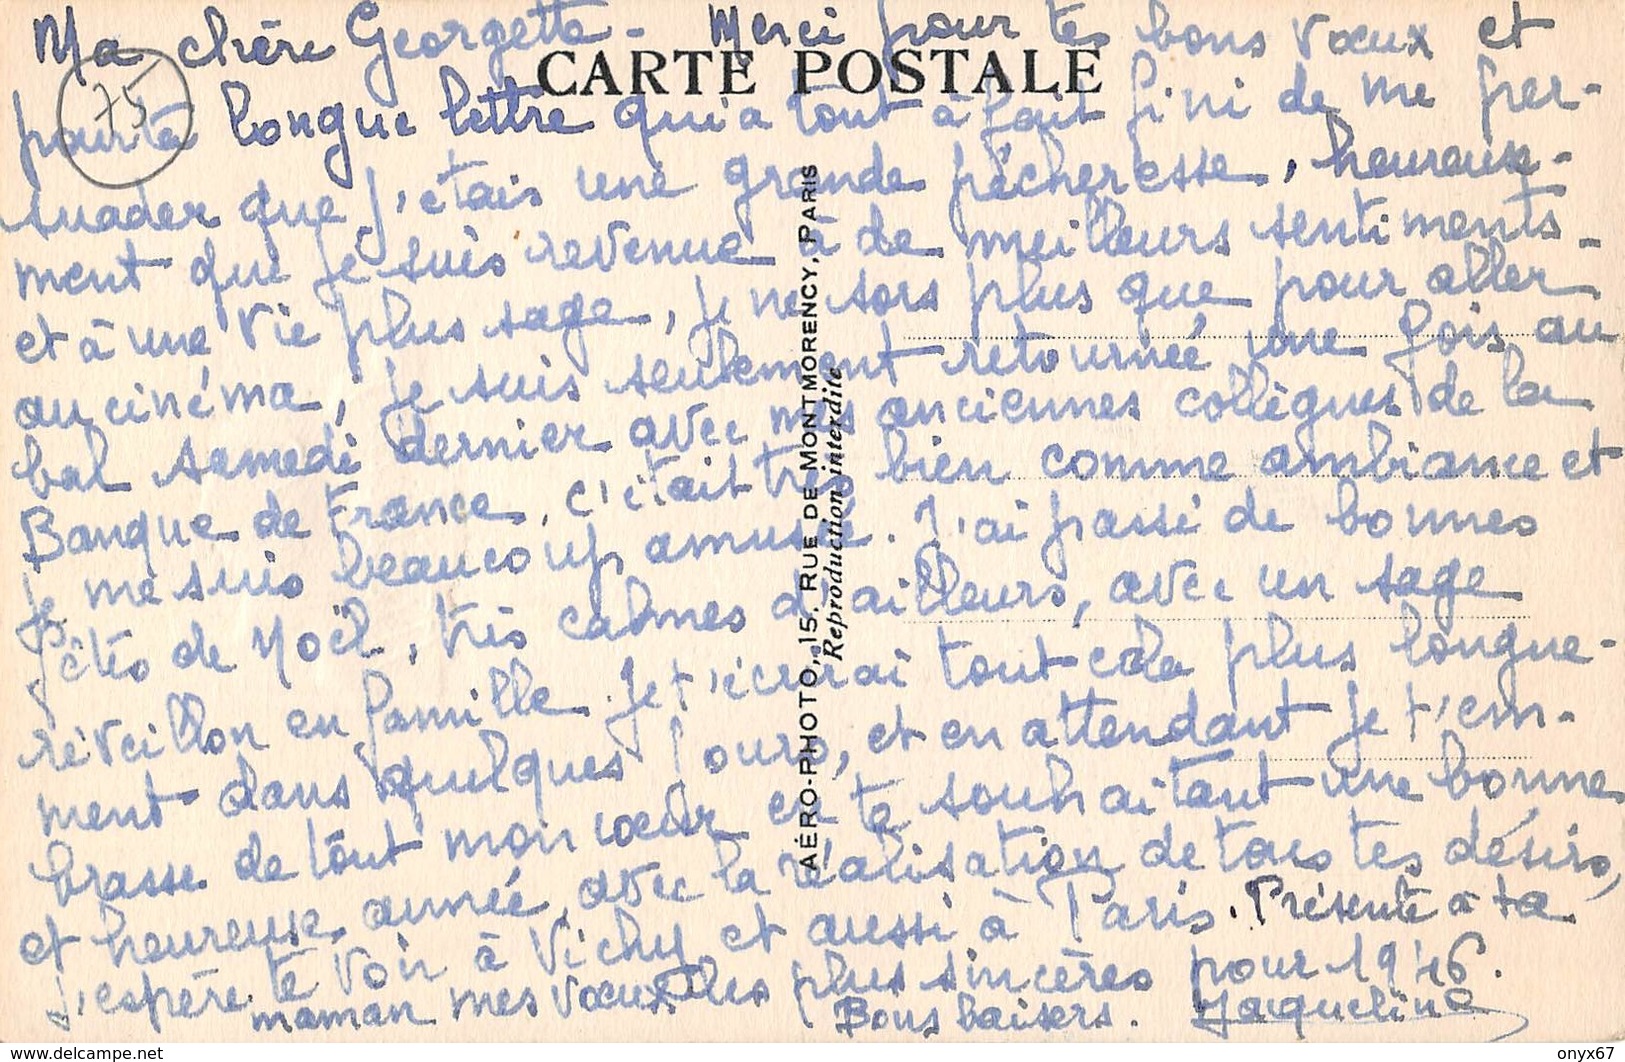 Ma chère Georgette - Merci pour tes bons vœux et
CARTE POSTALE
75
pour ta longue lettre qui a tout à fait fini de me per-
suader que j'étais une grande pécheresse, heureuse-
ment que je suis revenue à de meilleurs sentiments -
et à une vie plus sage, je ne sors plus que pour aller
au cinéma, je suis seulement retournée une fois au
bal samedi dernier avec mes anciennes collègues de la
Banque de France, c'était très bien comme ambiance et
je me suis beaucoup amusée. J'ai passé de bonnes
fêtes de Noël, très calmes d'ailleurs, avec un sage
réveillon en famille. Je t'écrirai tout cela plus longue-
ment dans quelques jours, et en attendant je t'em-
brasse de tout mon cœur en te souhaitant une bonne
et heureuse année, avec la réalisation de tous tes désirs,
j'espère te voir à Vichy et aussi à Paris. Présente à ta
maman mes vœux les plus sincères pour 1946.
Bons baisers. Jacqueline
AÉRO-PHOTO, 15, RUE DE MONTMORENCY, PARIS
Reproduction interdite
delcampe.net
onyx67